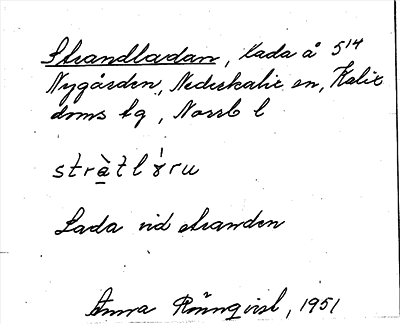 Strandladan, lada å 5¹⁴
Nygården, Nederkalix sn, Kalix
doms lg, Norrb l
Lada vid stranden
Anna Rönnqvist, 1951